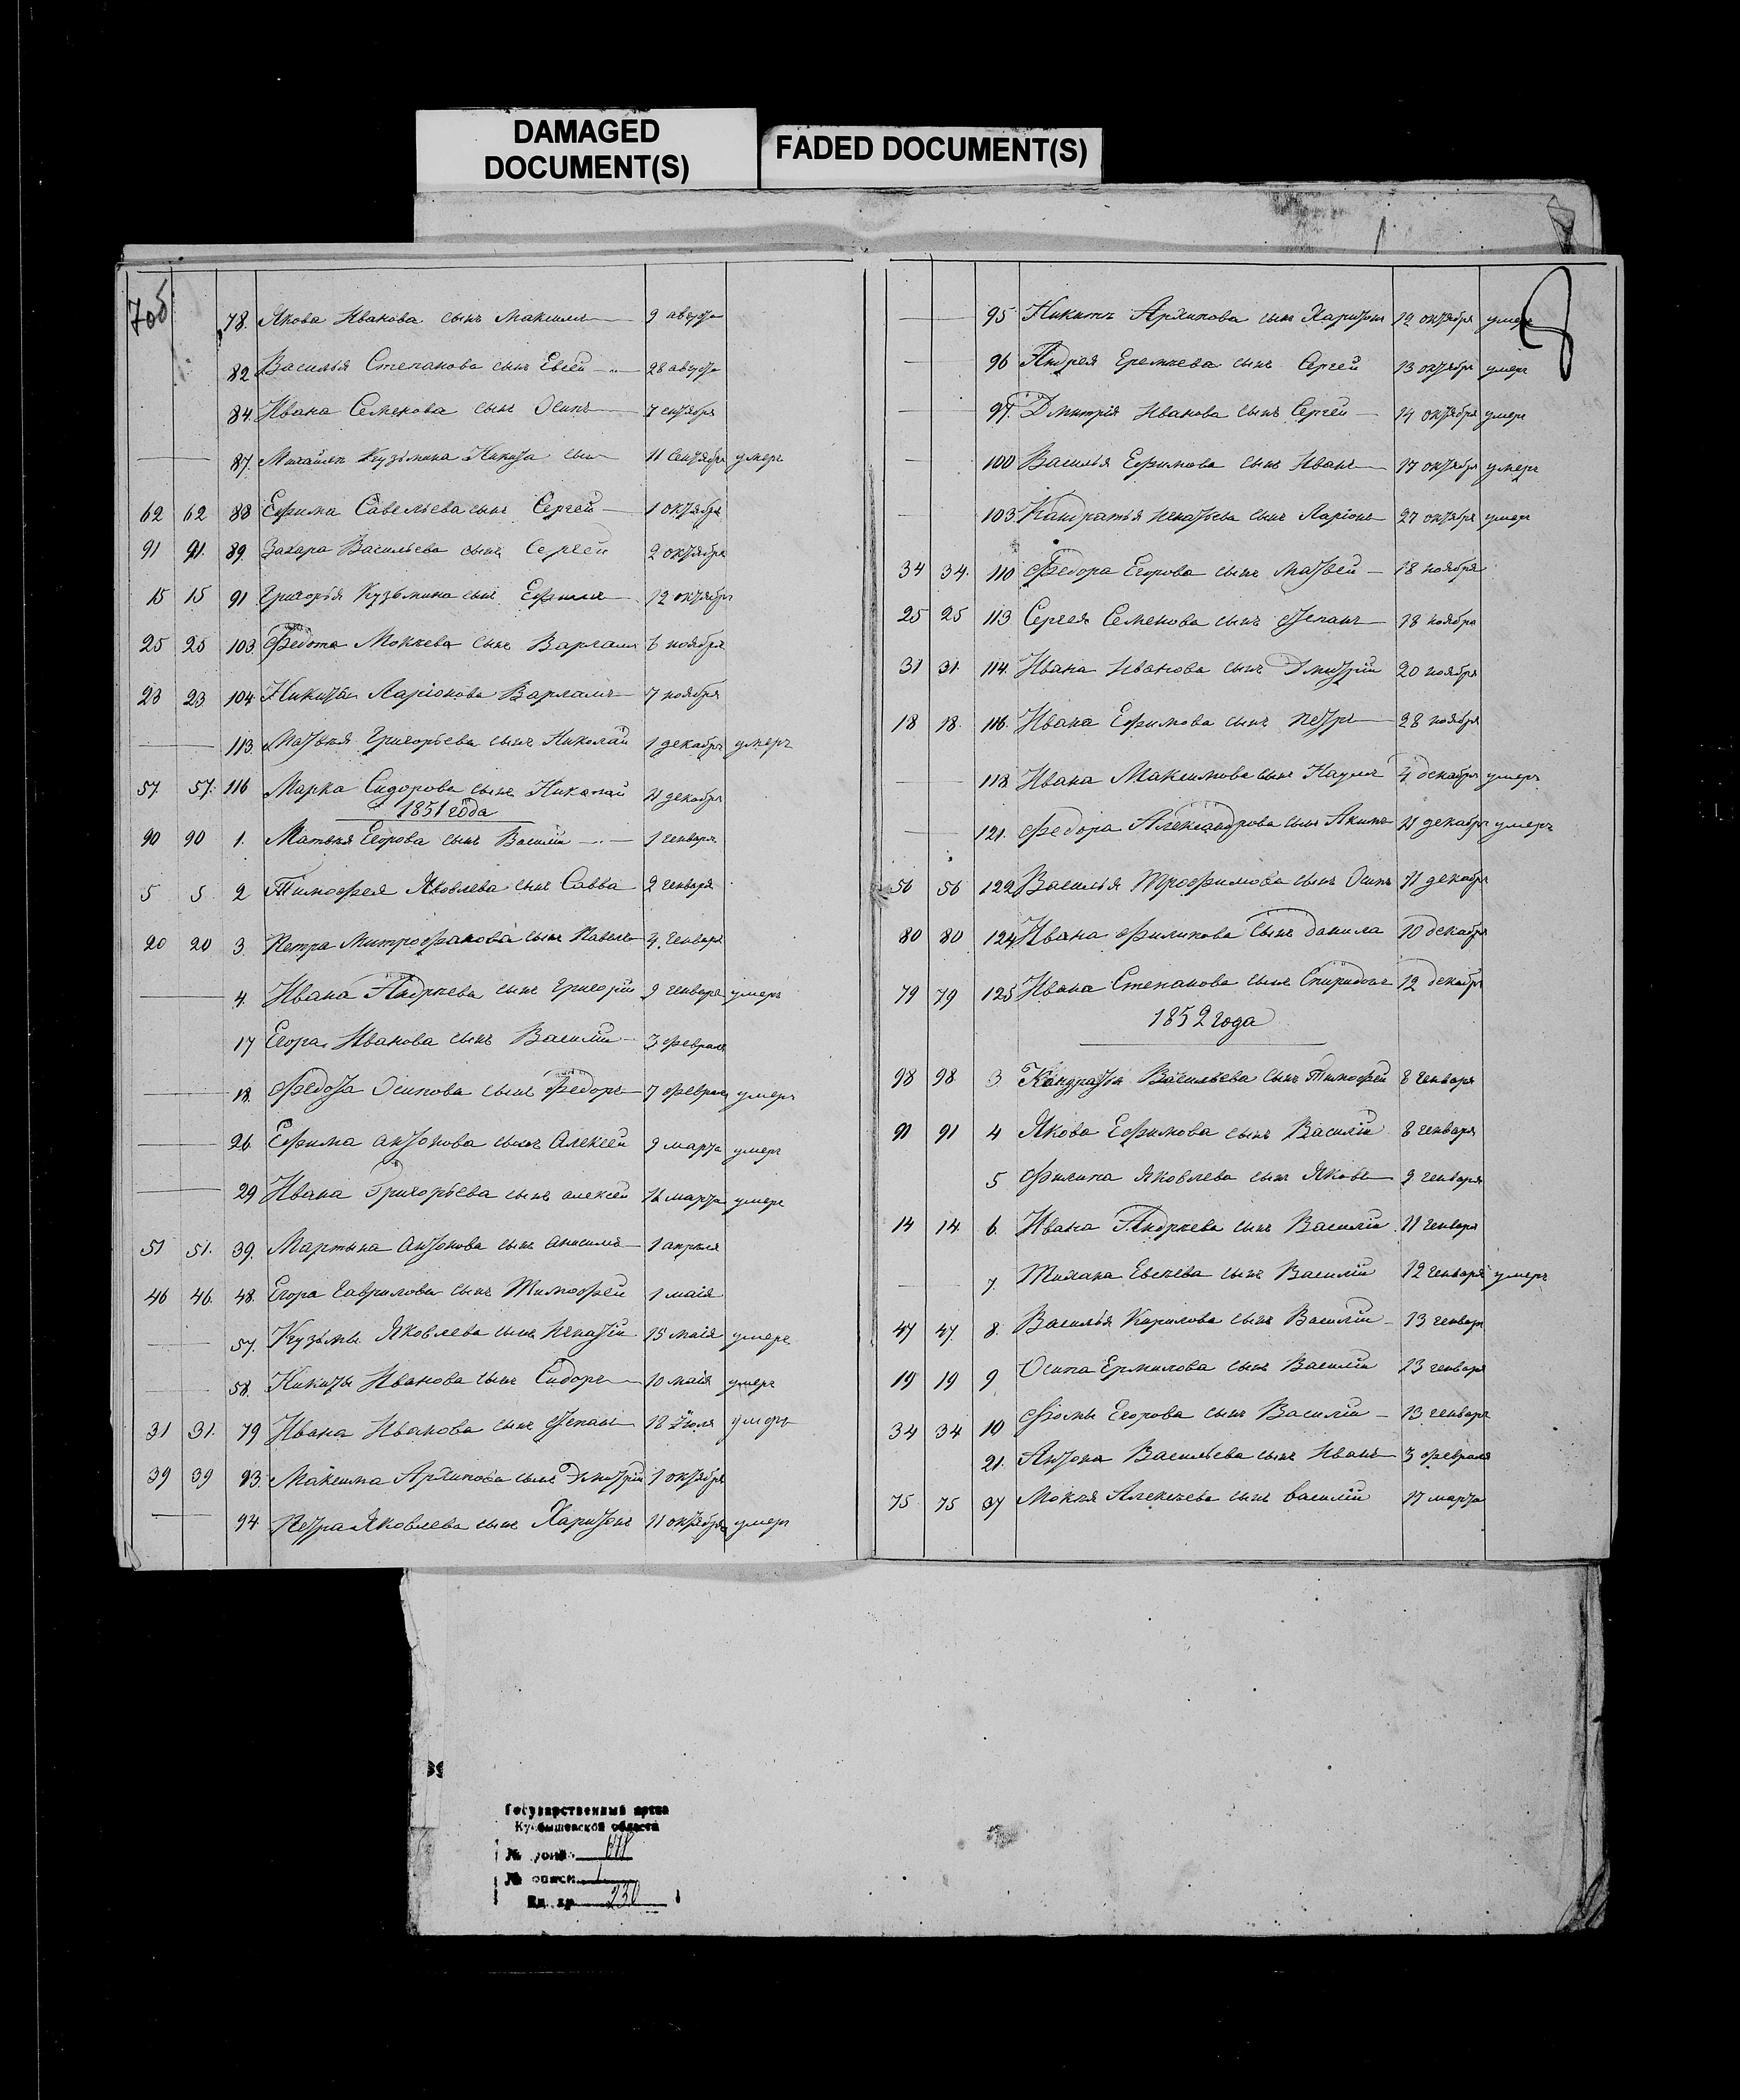 DAMAGED
DOCUMENT(S)
FADED DOCUMENT(S)
7об
78. Якова Иванова сынъ Максимъ 9 августа
82 Василья Степанова сынъ Евсей 28 августа
84. Ивана Семенова сынъ Осипъ 7 сентября
87. Михайлы Кузьмина Никита сынъ 11 Сентября умеръ
62 62 88 Ефима Савельева сынъ Сергей 1 октября
91 91. 89. Захара Васильева сынъ Сергей 2 октября
15 15 91 Григорья Кузьмина сынъ Ефимъ 12 октября
25 25 103. Федота Мокѣева сынъ Варламъ 6 ноября
23 23 104 Никиты Ларіонова Варламъ 7 ноября
113. Матвея Григорьева сынъ Николай 1 декабря умеръ
57 57. 116 Марка Сидорова сынъ Николай 4 декабря
1851 года
90 90 1. Матвея Егорова сынъ Василій 1 генваря
5 5 2 Тимофея Яковлева сынъ Савва 2 генваря
20 20 3. Петра Митрофанова сынъ Павелъ 4. генваря
4. Ивана Андреева сынъ Григорій 9 генваря умеръ
17 Егора Иванова сынъ Василій 3 февраля
18. Федота Осипова сынъ Федоръ 7 февраля умеръ
26 Ефима Антонова сынъ Алексей 9 марта умеръ
29 Ивана Григорьева сынъ алексей марта умеръ
51 51. 39. Мартына Антонова сынъ Анисимъ 1 апреля
46 46. 48. Егора Гаврилова сынъ Тимофей 1 маія
57. Кузьмы Яковлева сынъ Игнатій 15 маія умеръ
58. Никиты Иванова сынъ Сидоръ 10 маія умеръ
31 31. 79 Ивана Иванова сынъ Степанъ 18 Іюля умеръ
39 39 93. Максима Архипова сынъ Дмитрій 1 октября
94 Петра Яковлева сынъ Харитонъ 11 октября умеръ
8
95 Никиты Архипова сынъ Харитонъ 12 октября умеръ
96 Андрея Еремеева сынъ Сергей 13 октября умеръ
97. Дмитрія Иванова сынъ Сергей 14 октября умеръ
100 Василья Ефимова сынъ Иванъ 17 октября умеръ
103. Кандратья Игнатьева сынъ Ларіонъ 27 октября умеръ
34 34. 110 Федора Егорова сынъ Матвей 18 ноября
25 25 113 Сергея Семенова сынъ Степанъ 18 ноября
31 31. 114. Ивана Иванова сынъ Дмитрій 20 ноября
18 18. 116. Ивана Ефимова сынъ Петръ 28 ноября
118. Ивана Максимова сынъ Наумъ 4 декабря умеръ
121. Федора Александрова сынъ Акимъ 4 декабря умеръ
56 56 122 Василья Трофимова сынъ Осипъ декабря
80 80 124 Ивана Филипова сынъ Данила 10 декабря
79 79 125 Ивана Степанова сынъ Спиридонъ 12 декабря
1852 года
98 98 3. Кандратья Васильева сынъ Тимофей 8 генваря
91 91 4 Якова Ефимова сынъ Василій 8 генваря
5 Филипа Яковлева сынъ Яковъ 9 генваря
14 14. 6. Ивана Андреева сынъ Василій 11 генваря
7. Евсеева сынъ Василій 12 генваря умеръ
47 47. 8. Василья Кирилова сынъ Василій 13 генваря
19 19 9 Осипа Ермилова сынъ Василій 13 генваря
34 34 10 Фомы Егорова сынъ Василій 13 генваря
21. Антона Васильева сынъ Иванъ 3 февраля
75 75 37 Мокея Алексеева сынъ василій 17 марта
Государственный архив
Куйбышевской области
№ фонда
№ описи 1
Ед. хр. 230